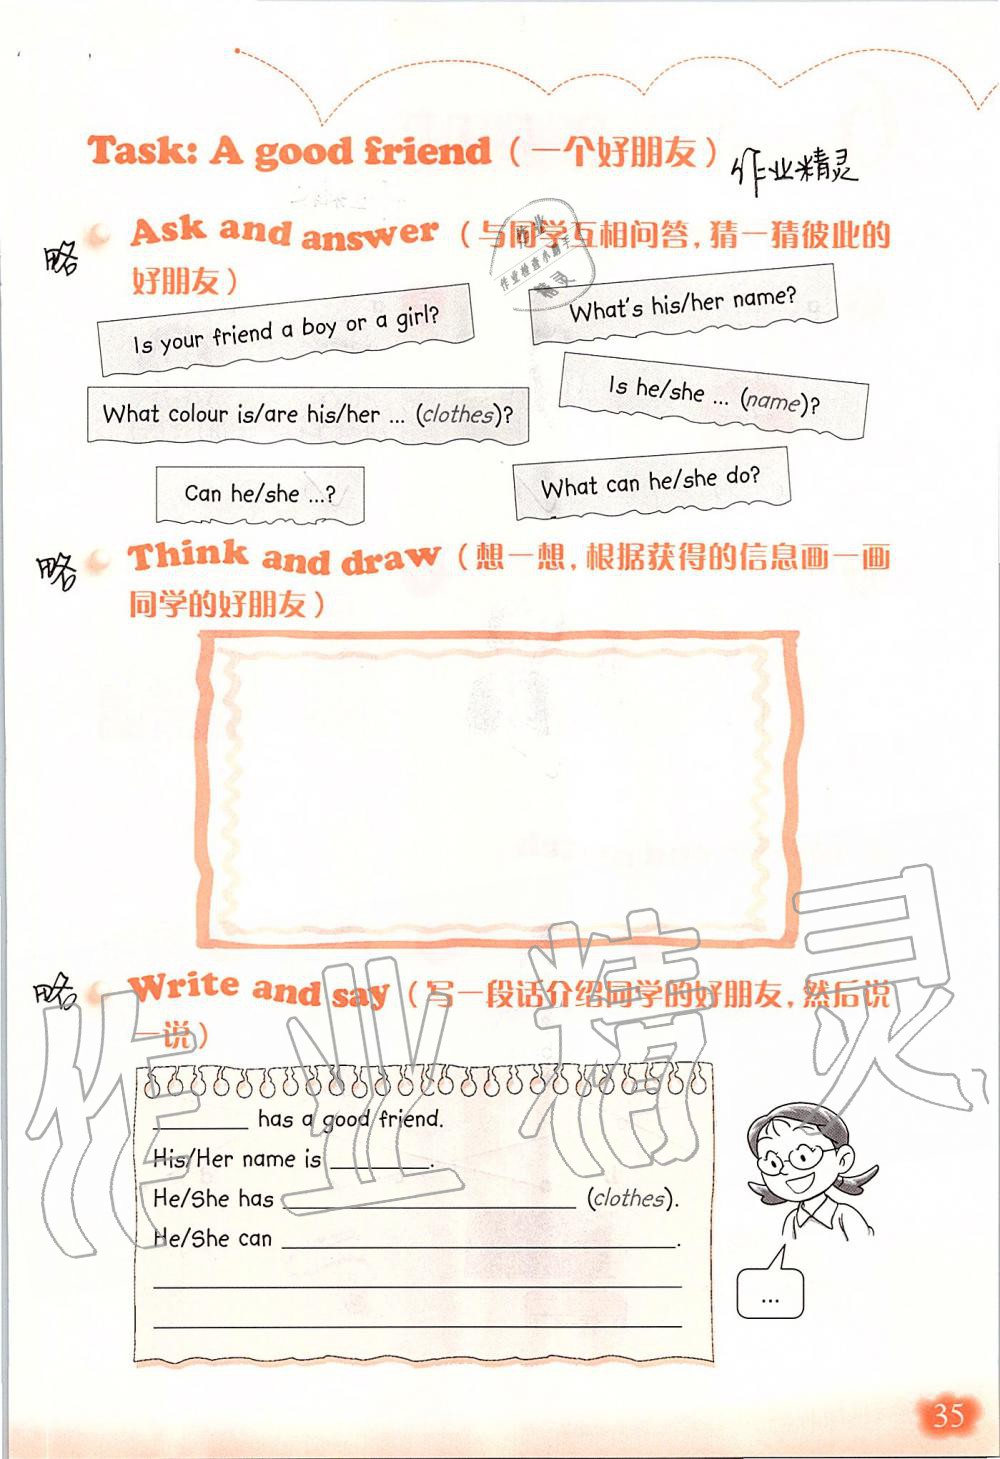 Task: A good friend（一个好朋友）作业精灵
略 Ask and answer（与同学互相问答，猜一猜彼此的
好朋友）
作业
作业检查小助手
精灵
Is your friend a boy or a girl?
What's his/her name?
What colour is/are his/her ... (clothes)?
Is he/she ... (name)?
Can he/she ...?
What can he/she do?
略 Think and draw（想一想，根据获得的信息画一画
同学的好朋友）
略 Write and say（写一段话介绍同学的好朋友，然后说
一说）
作业精灵
________ has a good friend.
His/Her name is ________.
He/She has ________________________ (clothes).
He/She can ________________________________.
...
35